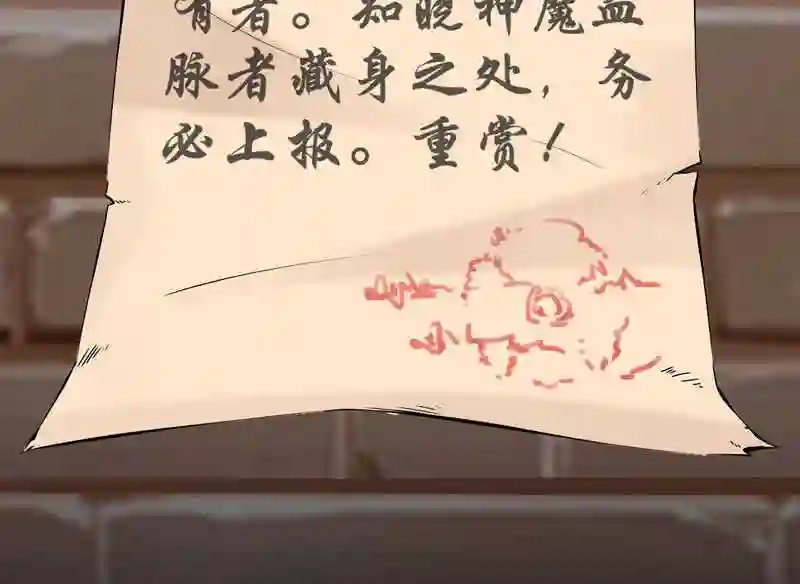 有者。知晓神魔血
脉者藏身之处，务
必上报。重赏！